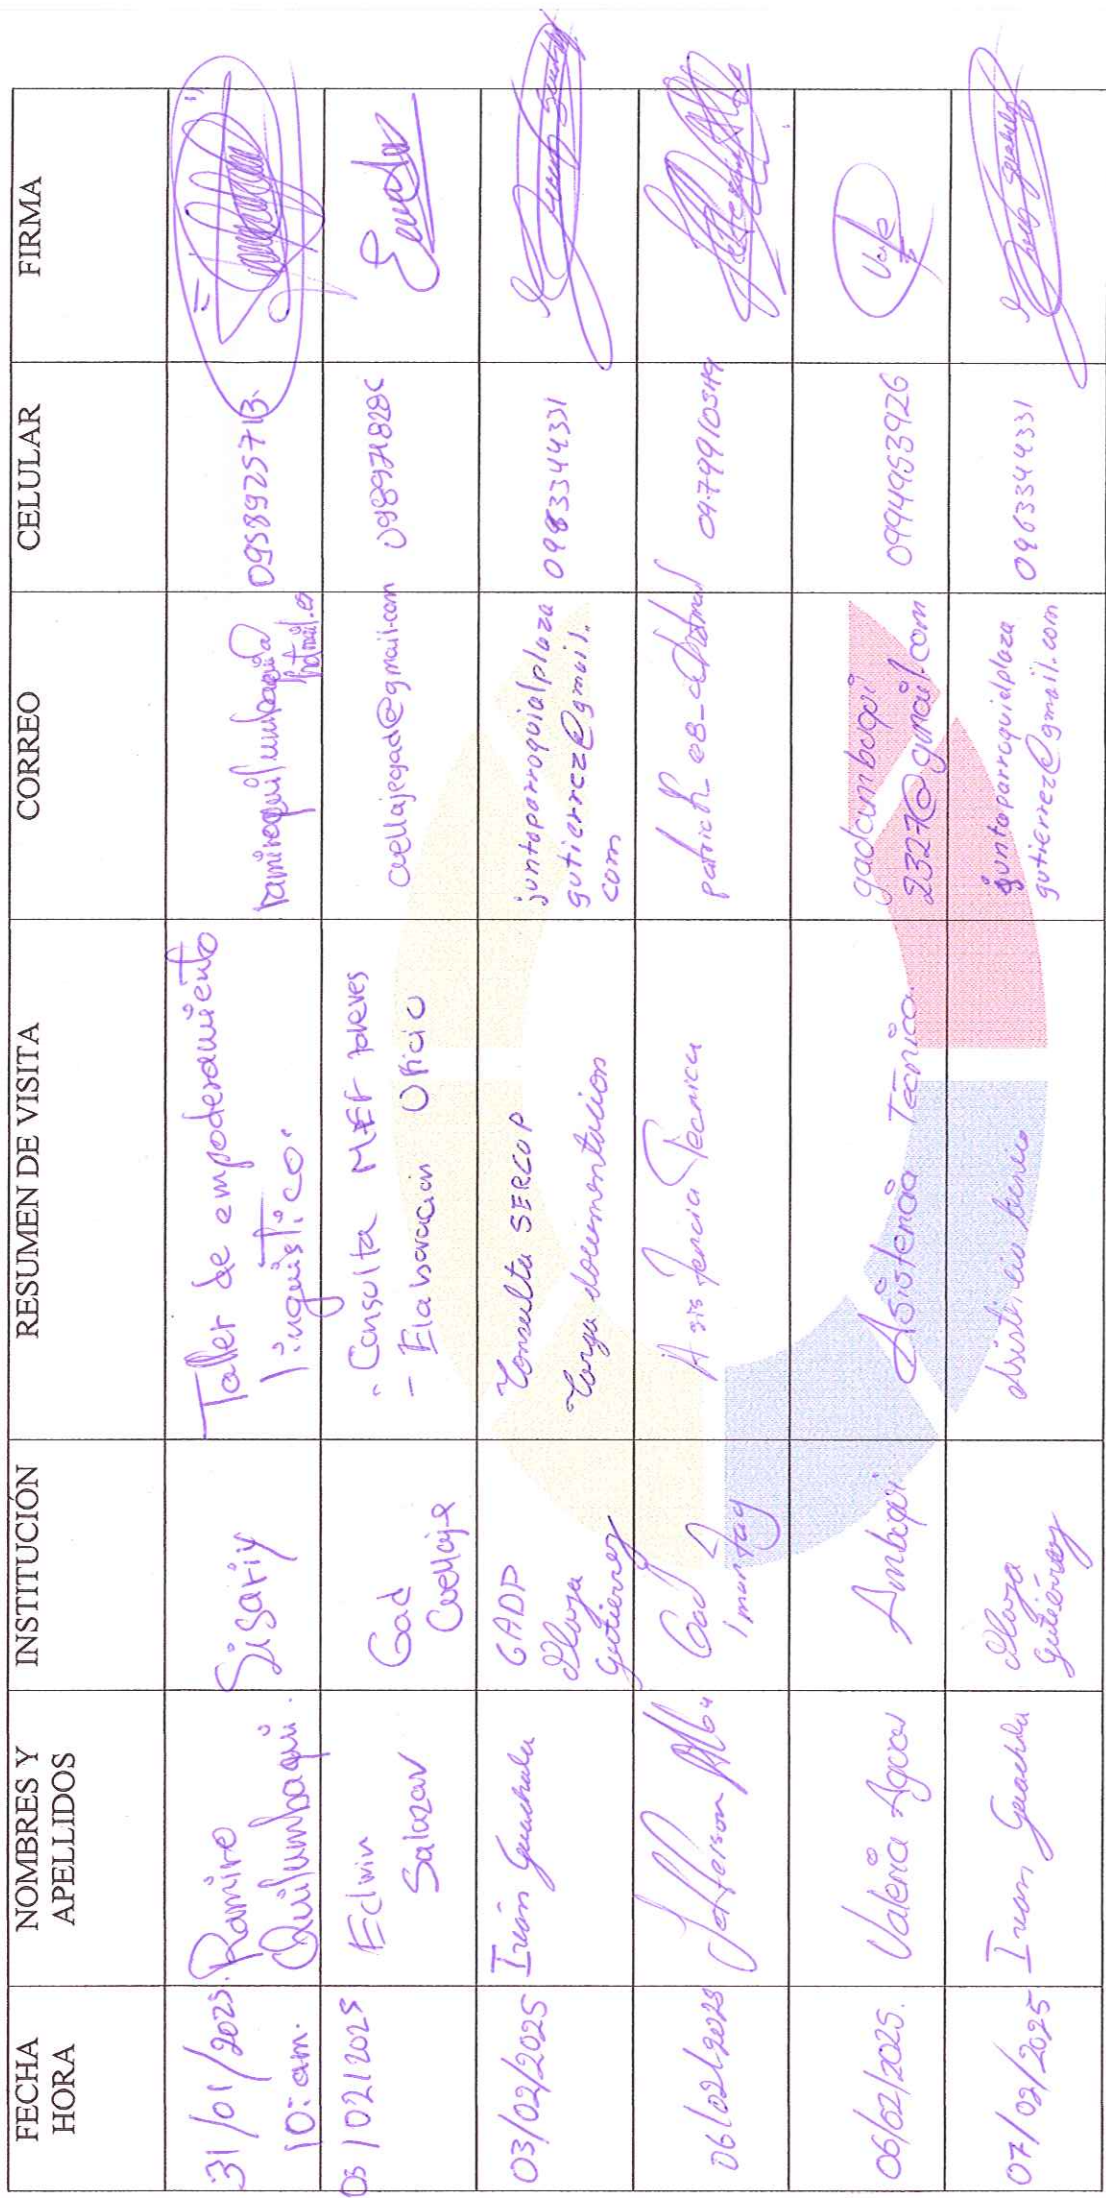 FECHA
HORA
NOMBRES Y
APELLIDOS
INSTITUCIÓN
RESUMEN DE VISITA
CORREO
CELULAR
FIRMA
31/01/2025.
10: am.
Ramiro
Quilumbaqui.
Sisariy
Taller de empoderamiento
lingüistico.
hotmail.es
0958925713.
03/02/2025
Edwin
Salazar
Gad
Cuellaje
- Consulta MEF
- Elaboración Oficio
cuellajegad@gmail.com
03/02/2025
Iván Guachala
GADP
Plaza
Gutierrez
Consulta SERCOP
Carga documentacion
juntaparroquialplaza
gutierrez@gmail.
com
06/02/2025
Jefferson
Gad
Imantag
Asistencia Tecnica
06/02/2025.
Valeria
Ambuqui.
Asistencia Tecnica.
gadambuqui
2327@gmail.com
0994953926
07/02/2025
Ivan Guachala
Plaza
Gutiérrez
juntaparroquialplaza
gutierrez@gmail.com
0963344331